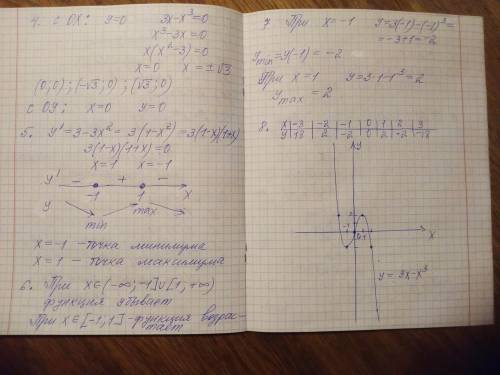 4. С OX: y=0 3x-x³=0
x³-3x=0
x(x²-3)=0
x=0 x=±√3
(0;0); (-√3;0); (√3;0)
С OY: x=0 y=0
5. y'=3-3x²=3(1-x²)=3(1-x)(1+x)
3(1-x)(1+x)=0
x=1 x=-1
y' - + -
-1 1 x
y min max
x=-1 -точка минимума
x=1 - точка максимума
6. При x∈(-∞;-1]∪[1;+∞)
функция убывает
При x∈[-1;1]-функция возрас-
тает
7. При x=-1 y=3·(-1)-(-1)³=
=-3+1=-2
ymin=y(-1)=-2
При x=1 y=3·1-1³=2
ymax=2
8. x -3 -2 -1 0 1 2 3
y 18 2 -2 0 2 -2 -18
y
x
y=3x-x³